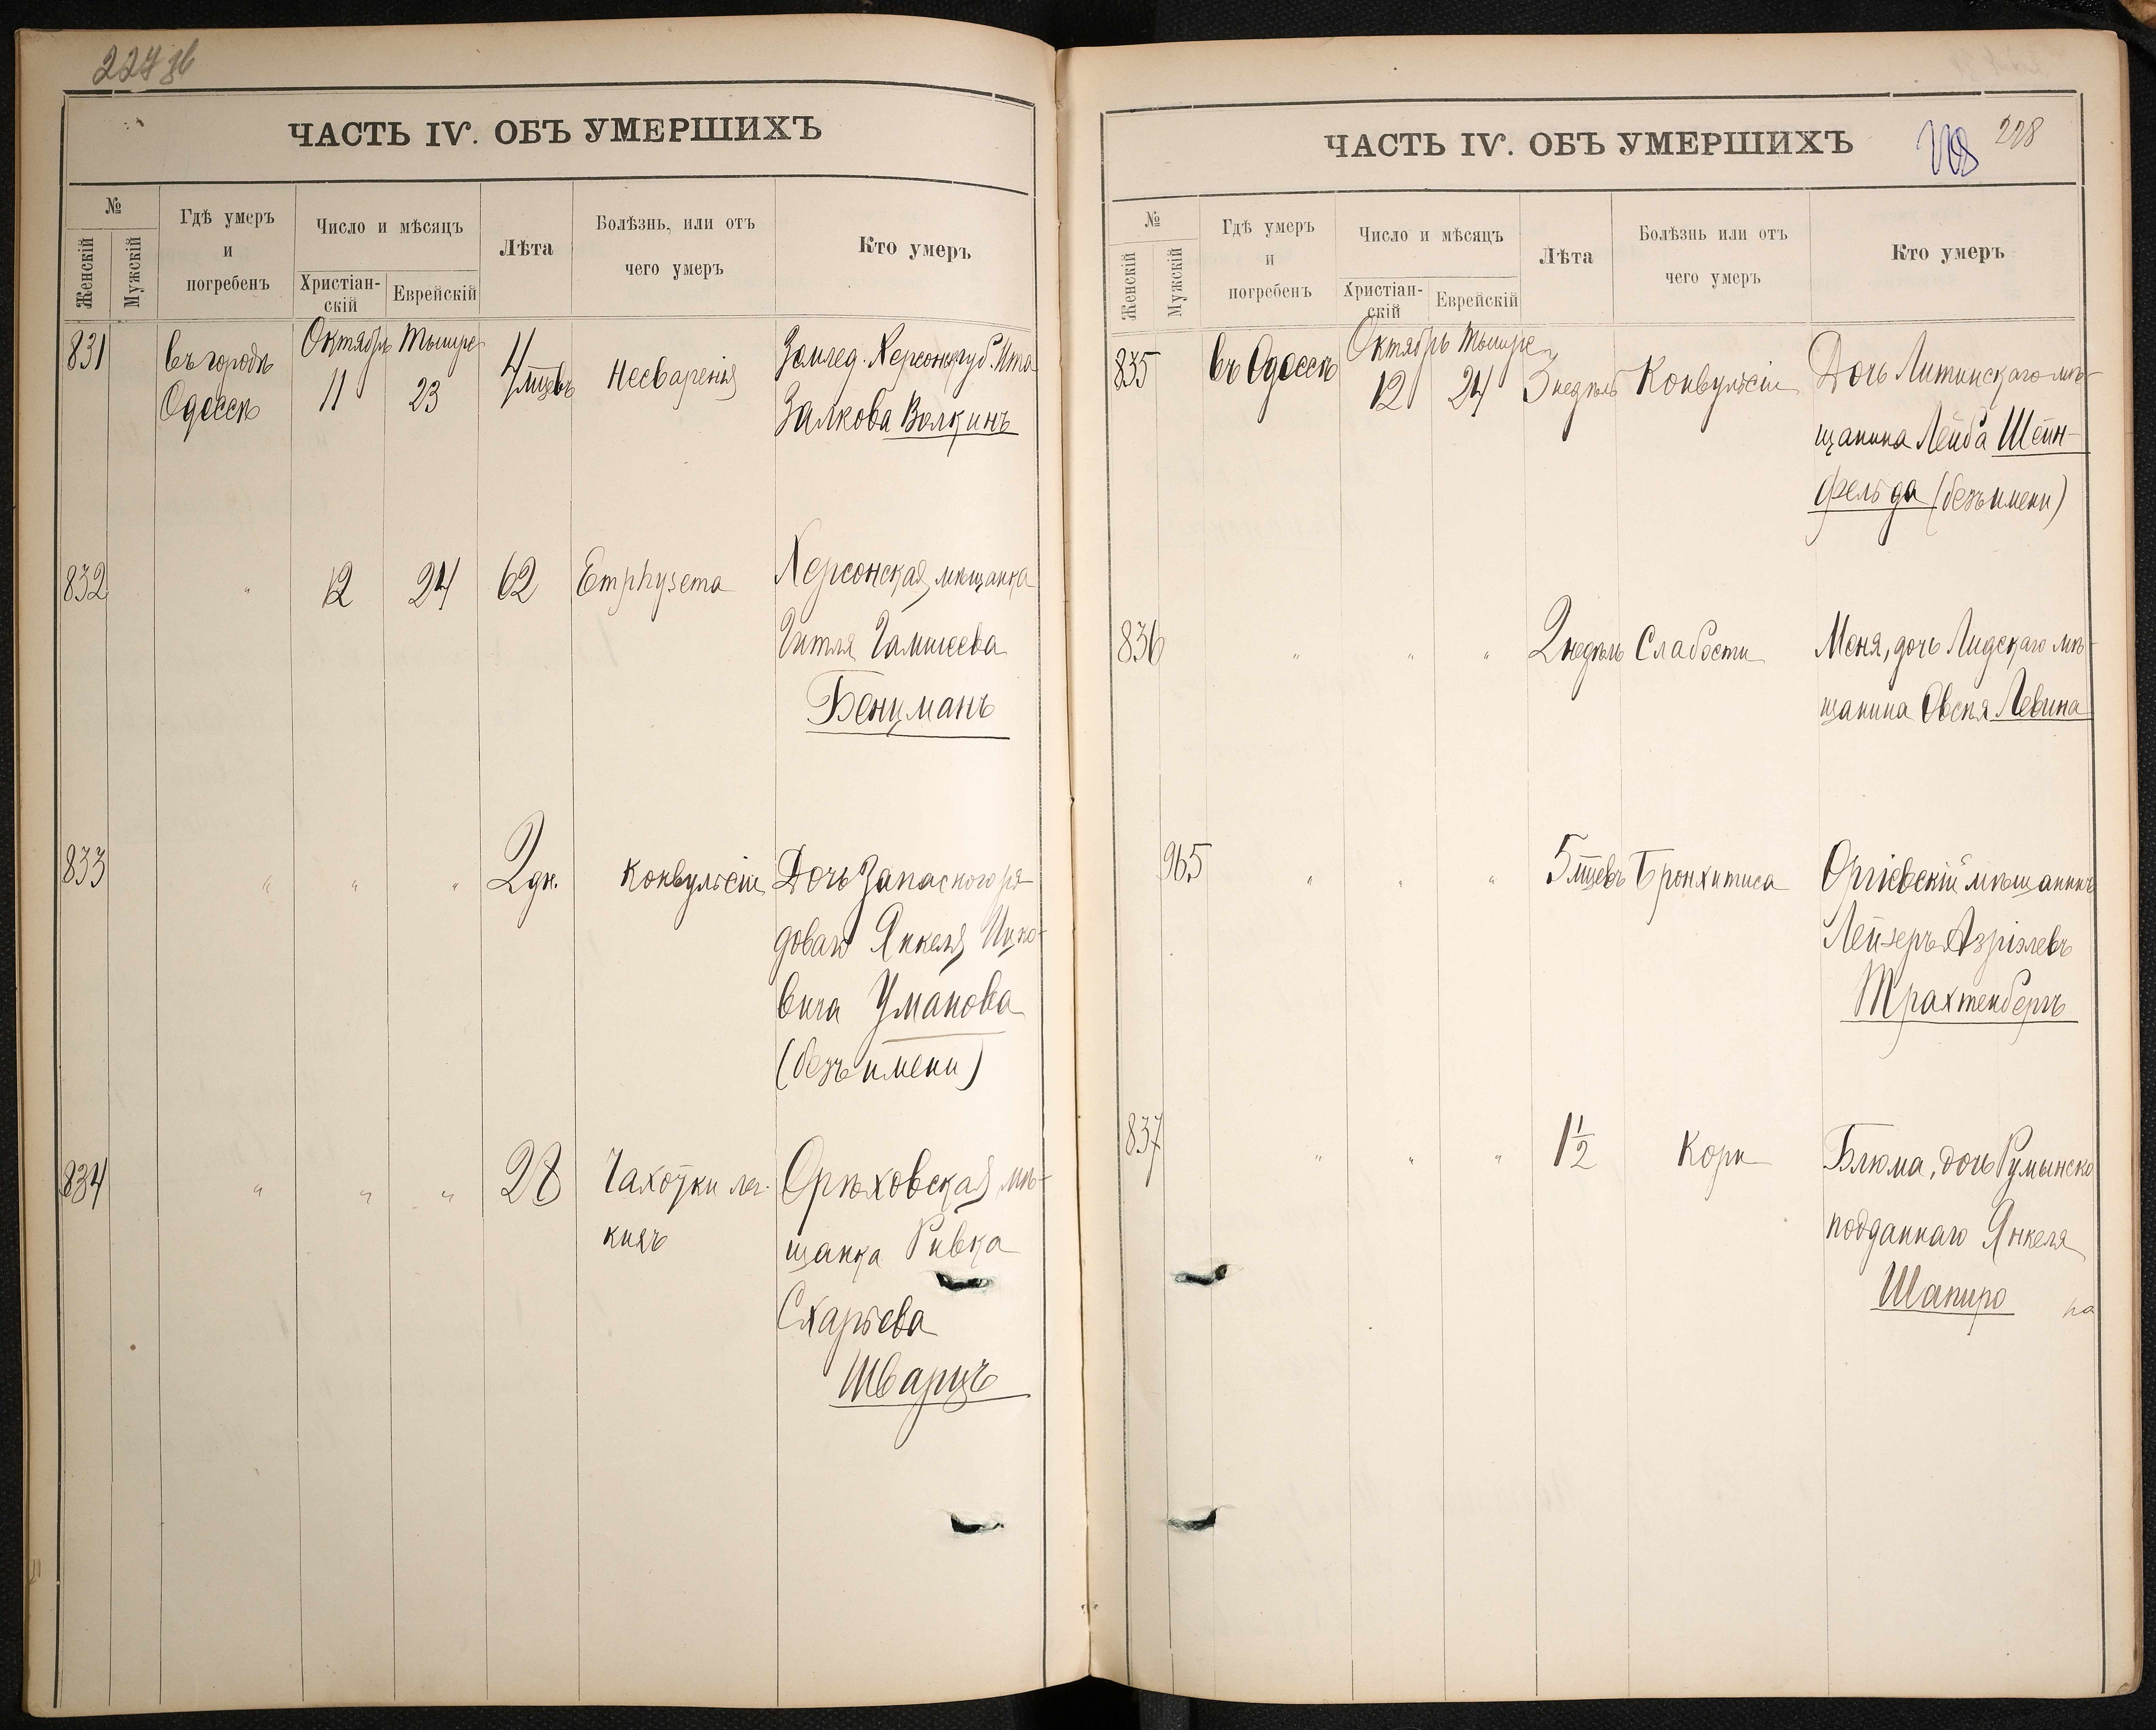 227 зв
ЧАСТЬ IV. ОБЪ УМЕРШИХЪ
№
Женскій
Мужскій
Гдѣ умеръ
и
погребенъ
Число и мѣсяцъ
Христіан-
скій
Еврейскій
Лѣта
Болѣзнь, или отъ
чего умеръ
Кто умеръ
831
въ городѣ
Одессѣ
Октябрь
11
Тышре
23
4
мцевъ
Несваренія
Землед. Херсонск губ. Ита
Залкова Волкинъ
832 " 12 24 62 Emphysema
Херсонская мѣщанка
Гитля
Бенцманъ
833 " " " 2 дн. Конвульсіи
Дочь Запаснаго ря-
доваго Янкеля Ицко-
вича Уманова
(безъ имени)
834 " " " 28
Чахотки лег-
кихъ
Орѣховская мѣ-
щанка Ривка
Схарьева
Шварцъ
228
ЧАСТЬ IV. ОБЪ УМЕРШИХЪ
№
Женскій
Мужскій
Гдѣ умеръ
и
погребенъ
Число и мѣсяцъ
Христіан-
скій
Еврейскій
Лѣта
Болѣзнь или отъ
чего умеръ
Кто умеръ
835
въ Одессѣ
Октябрь
12
Тышре
24
3 недѣль
Конвульсіи
Дочь Литинскаго мѣ-
щанина Лейба Штейн-
фельда (безъ имени)
836 " " " 2 недѣль Слабости
Меня, дочь Лидскаго мѣ-
щанина Овсея Левина
965 " " " 5 мцевъ Бронхитиса
Оргіевскій мѣщанинъ
Лейзеръ Азріэлевъ
Трахтенбергъ
837 " " " 1½ Кори
Блюма, дочь Румынско
подданнаго Янкеля
Шапиро